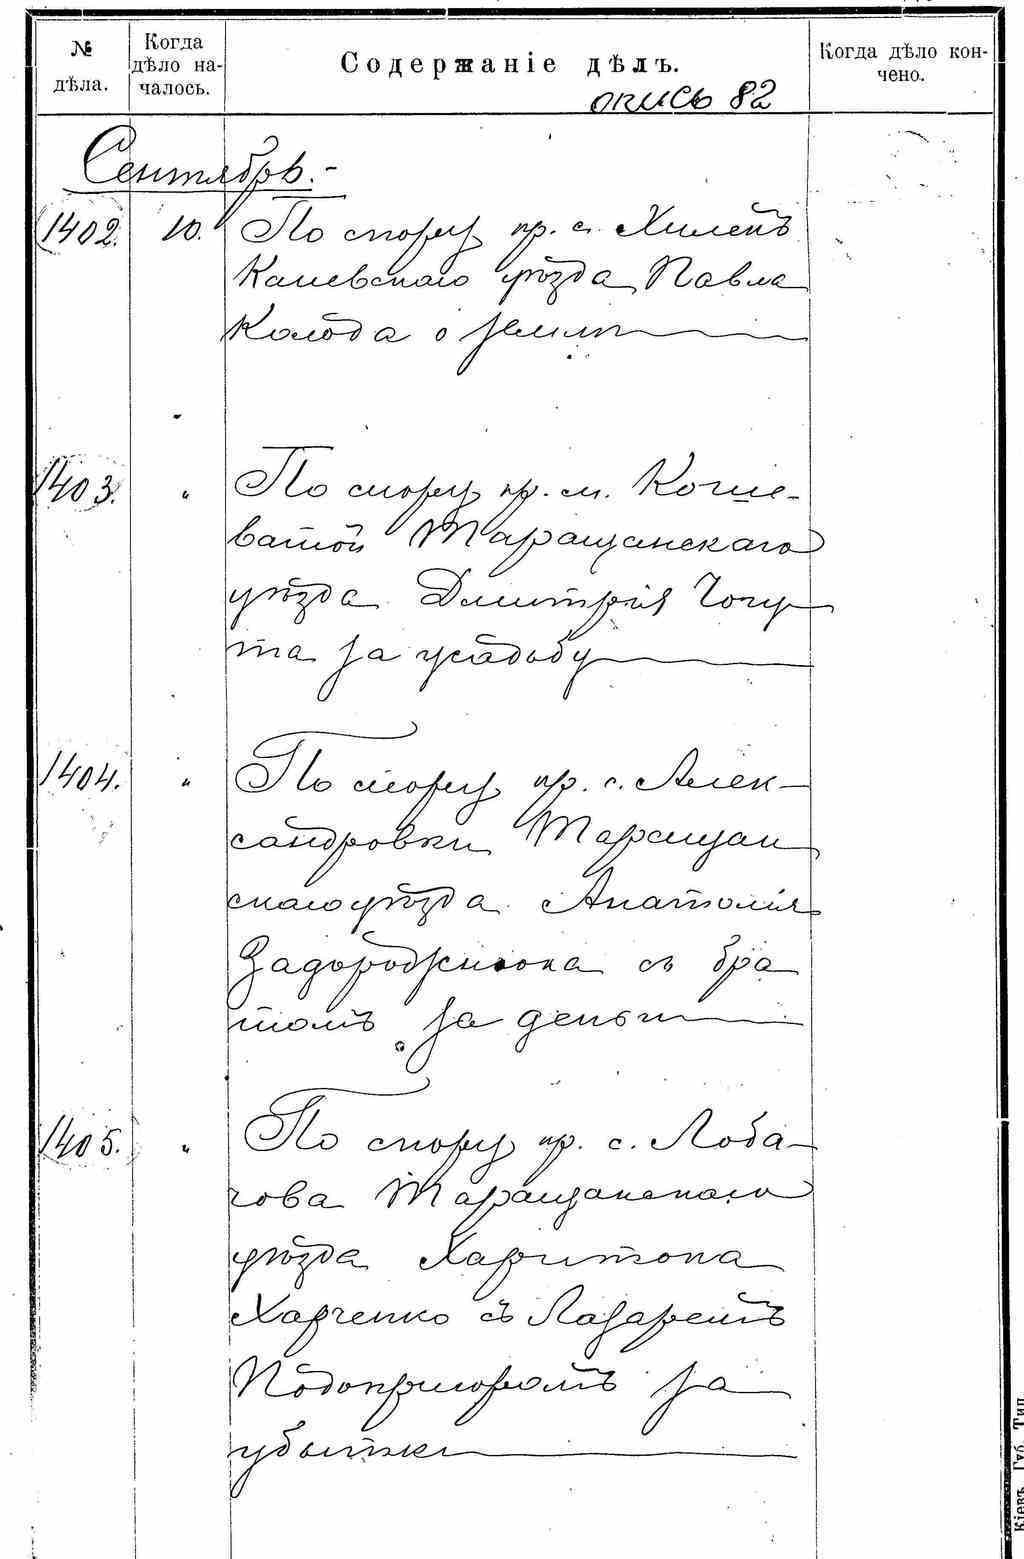 № дѣла.
Когда дѣло началось.
Содержаніе дѣлъ.
Когда дѣло кончено.
опись 82
Сентябрь.-
1402. 10. По спору кр. с. Хилекъ
Каневскаго уѣзда Павла
Колода о землѣ
1403. " По спору кр. м. Коше-
ватой Таращанскаго
уѣзда Дмитрія Чогу-
та за усадьбу
1404. " По спору кр. с. Алек-
сандровки Таращан
скаго уѣзда Анатолія
Задорожнюка съ бра
томъ за деньги
1405. " По спору кр. с. Лоба-
чова Таращанскаго
уѣзда Харитона
Харченко съ Лазаремъ
Подопригоромъ за
убытки
Кіевъ. Губ. Тип.